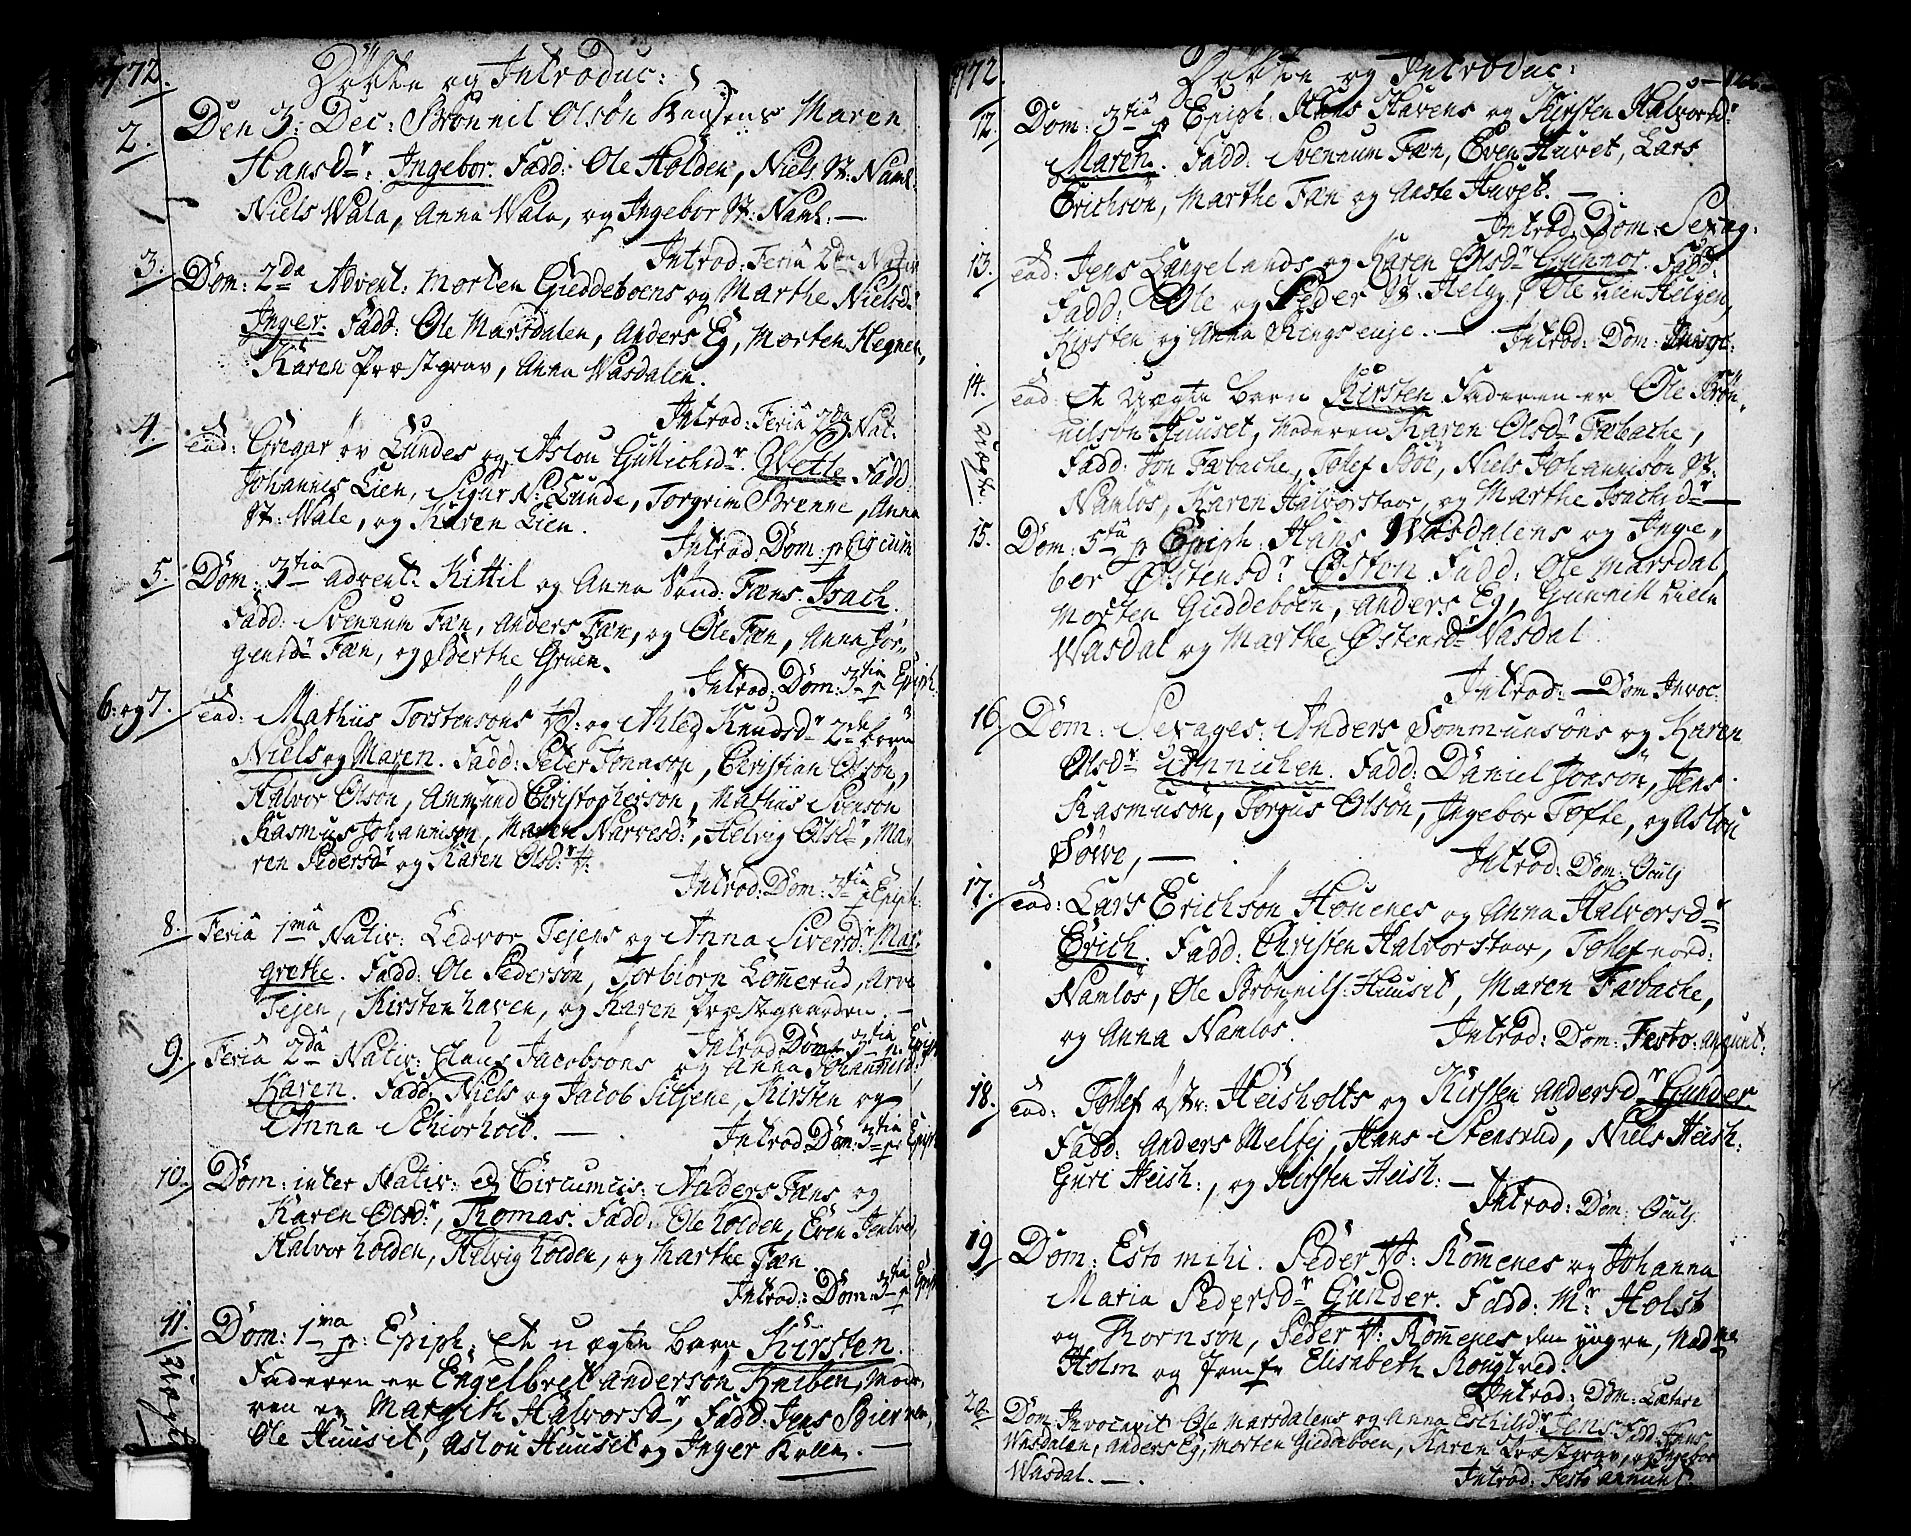 1772.
Döbte og Introduc:
2. Den 3: Dec: Brönnil Olsön Maren
Hansdr: Ingebor. Fadd: Ole Holden, Niels W: Naml:
Niels Wala, Anna Wala, og Ingebor W: Naml: —
Introd: Feria 2da Nativ
3. Dom: 2da Advent: Morten Gieddeboens og Marthe Nielsd:
Inger. Fadd: Ole Marsdalen, Anders Eg, Morten Hegnen,
Karen Præstgrav, Anna Wasdalen.
Introd: Feria 2da Nat.
4. ead: Gregar öv Lundes og Aslou Gullichsdr. Wetle Fadd:
Johannis Lien, Sigur N: Lunde, Torgrim Brenne, Anna
W: Wale, og Karen Lien.
Introd Dom: p Circum
5. Dom: 3tia Advent: Kittil og Anna Sönd: Fæns. Isach.
Fadd: Svennum Fæn, Anders Fæn, og Ole Fæn, Anna Jör-
gensdr Fæn, og Berthe Gruen.
Introd: Dom: 3tia p Epiph.
6. og 7. ead: Mathiis Torstensöns W: og Ahleg Knudsdr 2de börn
Niels og Maren. Fadd: Peter Tomasön, Christian Olsön,
Halvor Olsön, Ammund Christophersön, Mathiis Svensön
Rasmus Johannisön, Maren Narvesdr, Helvig Olsdr, Ma-
ren Pedersdr og Karen Olsdr W:
Introd: Dom: 3tia p Epiph:
8. Feria 1ma Nativ: Ledvor Tejens og Anna Siversdr Mar-
grethe. Fadd: Ole Pedersön, Torbiörn Lömerud, Arve
Tejen, Kirsten haven, og Karen Præstegaarden. —
Introd Dom: 3tia p. Epiph
9. Feria 2da Nativ: Claus Jacobsöns og Anna Johannisd:
Karen. Fadd: Niels og Jacob Siljene, Kirsten og
Anna Schiörholt. —
Introd Dom: 3tia p Epiph
10. Dom: inter Nativ: et Circumcis: Anders Fæns og
Karen Olsdr, Thomas. Fadd: Ole holden, Even Jentved,
Halvor holden, Helvig holden, og Marthe Fæn.
Introd: Dom: 3tia p Epiph
11. uægte Dom: 1ma p: Epiph: et uægte barn Kirsten.
Faderen er Engelbret Andersön Kniben, Mode-
ren er Margith Halvorsdr, Fadd: Jens
Ole Huuset, Aslou Huuset og Inger Kolen. —
1772.
Döbte og Introduc:
12. Dom: 3tia p Epiph: Hans Havens og Kirsten Halvorsdr
Maren. Fadd: Svennum Fæn, Even Huset, Lars
Erichsön, Marthe Fæn og Aaste Huset. —
Introd: Dom: Sexag:
13. ead: Jens Langelands og Karen Olsdr Gunnor. Fadd:
Fadd: Ole og Peder W: Helg:, Ole Lien Helgen,
Kirsten og Anna Ringsenje. — Introd: Dom:
14. uægte. ead: et uægte barn Kirsten Faderen er Ole Brön-
nilsön Huuset, Moderen Karen Olsdr Fæbache,
Fadd: Jon Fæbache, Tollef Böe, Niels Johannisön W:
Namlös, Karen Halvorstaar, og Marthe Isachsdr —
15. Dom: 5ta p Epiph: Hans Wasdalens og Inge-
ber Östensdr Östen Fadd: Ole Marsdal,
Morten Gieddeboen, Anders Eg, Gunnill Lien
Wasdal og Marthe Östensdr Vasdal.
Introd: — Dom Invoc:
16. Dom: Sexages: Anders Sommunsöns og Karen
Olsdr Fadd: Daniel Jonsön, Jens
Rasmusön, Torgus Olsön, Ingebor Tofte, og Aslou
Söwe, —
Introd: Dom: Oculj
17. ead: Lars Erichsön Houenes og Anna Halvorsdr
Erich. Fadd: Christen Halvorstaar, Tollef nord:
Namlös, Ole Brönnils: Huuset, Maren Fæbache,
og Anna Namlös.
Introd: Dom: Festo: anunt:
18. ead: Tollef östr: Heisholts og Kirsten Andersdr Gunder
Fadd: Anders Melbj, Hans Stensrud, Niels Heish:
Guri Heish:, og Kirsten Heish: —
Introd: Dom: Oculj
19. Dom: Esto mihi. Peder W: Romenes og Johanna
Maria Pedersdr Gunder. Fadd: Mr Holst
og Thornsön, Peder W: Romenes den yngre, Madme
Holm og Jomfr Elisabeth Rougtved.
Introd: Dom: Lætare
20. Dom Invocavit Ole Marsdalens og Anna Eschildsdr Jens Fadd: Hans
Wasdalen, Anders Eg, Morten Gieddeboen, Karen Præstgrav, og Ingebor
Wasdal. —.
Introd: Festo anunt: